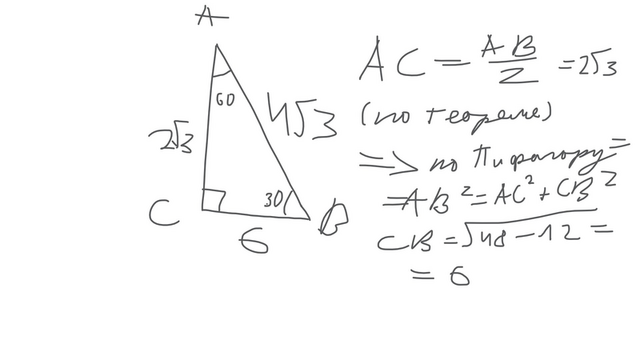 A
60
2√3
4√3
C
30
B
6
AC = AB/2 = 2√3
(по теореме)
=> по Пифагору =
=AB² = AC² + CB²
CB = √48 - 12 =
= 6